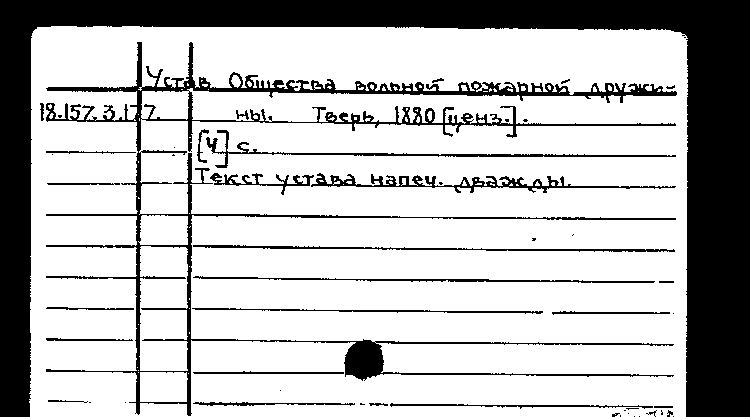 Устав Общества вольной пожарной дружи-
18.157.3.177. ны. Тверь, 1880 [ценз.].
[4] с.
Текст устава напеч. дважды.